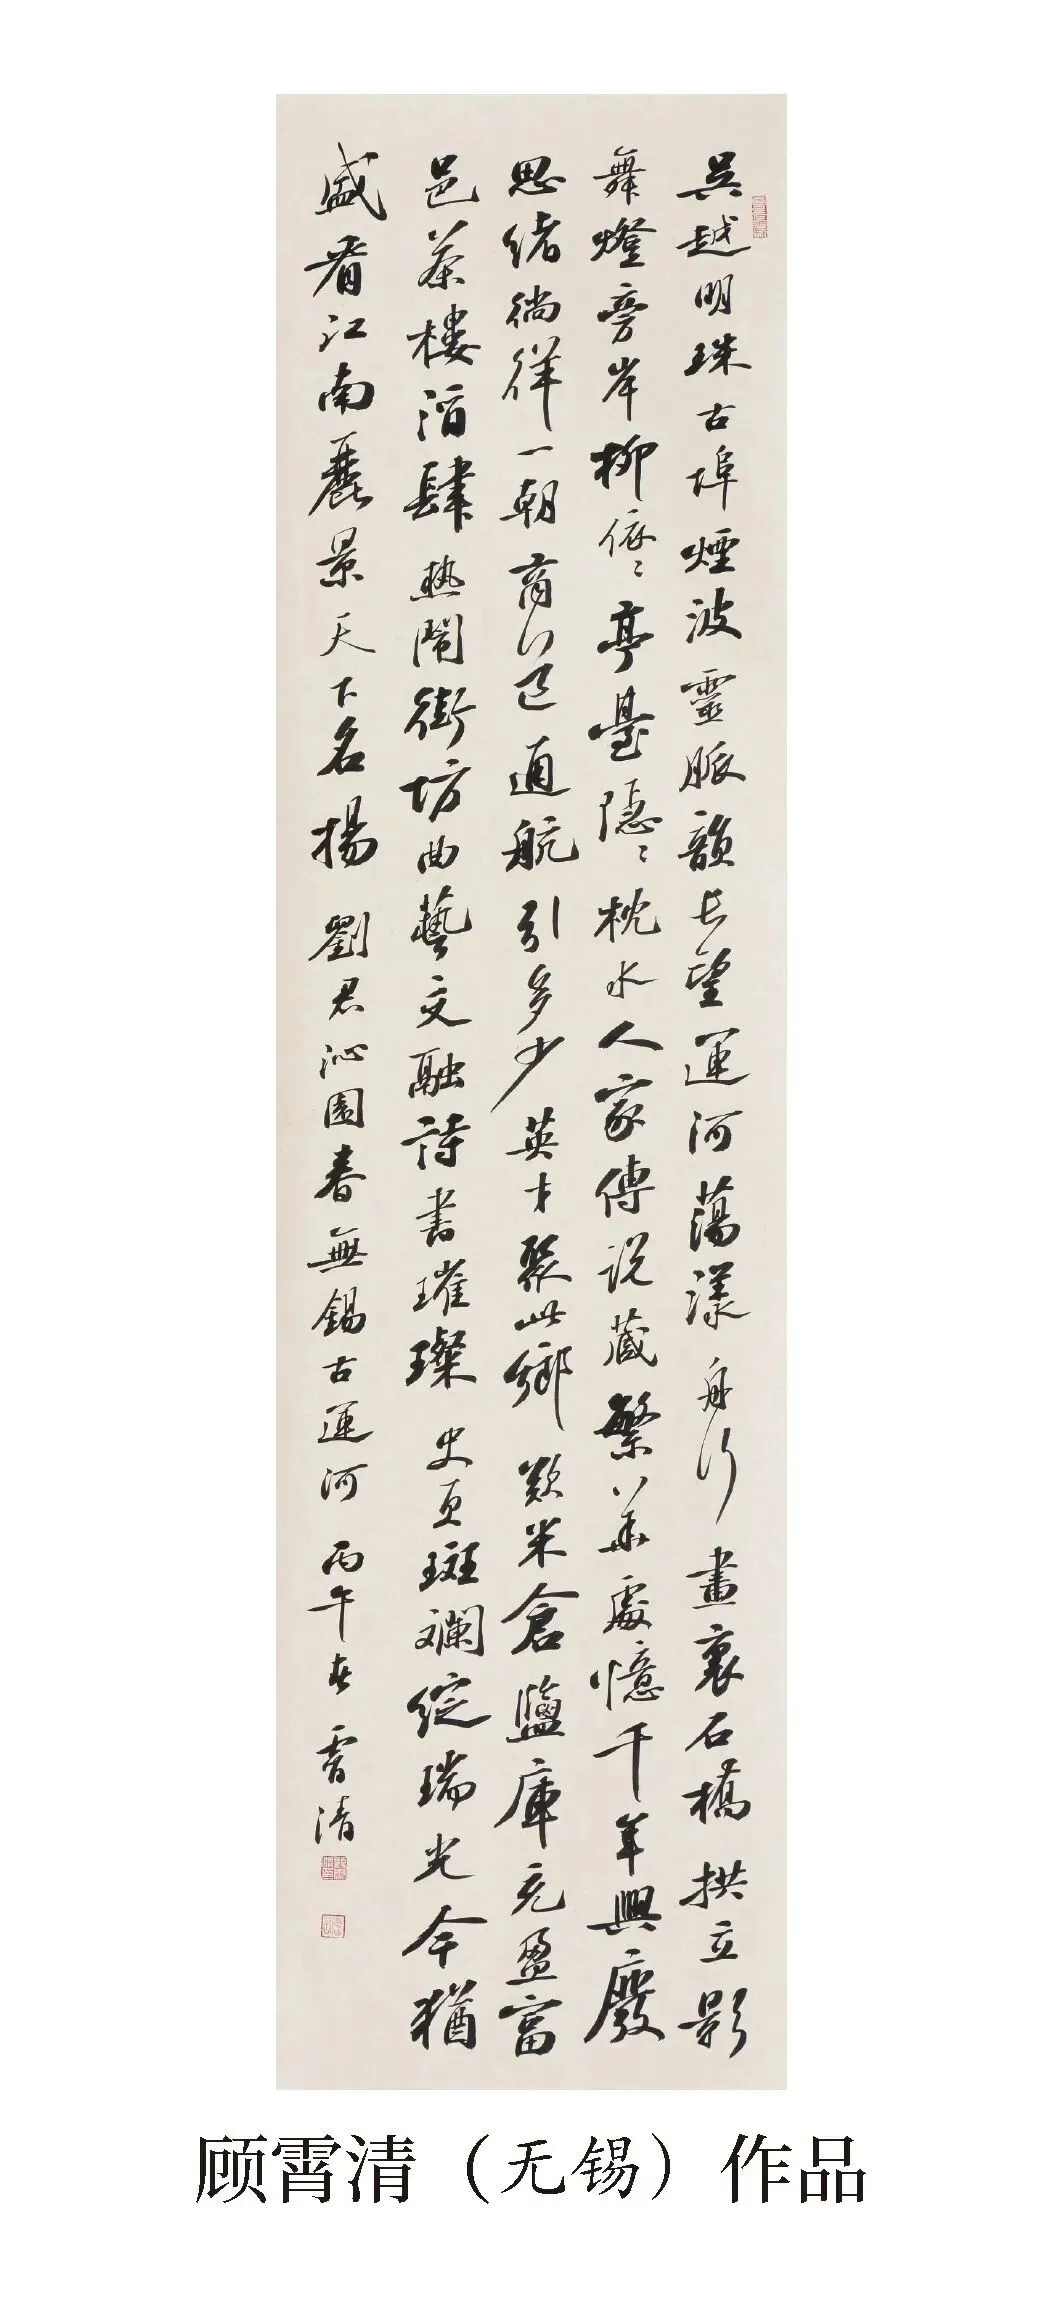 吳越明珠古埠煙波靈脈韻長望運河蕩漾舟行畫裏石橋拱立影
舞燈旁岸柳依〻亭臺隱〻枕水人家傳說藏繁華處憶千年興廢
思緒徜徉一朝商道通航引多少英才聚此鄉歎米倉鹽庫充盈富
邑茶樓酒肆熱鬧街坊曲藝文融詩書璀璨史頁斑斕綻瑞光今猶
盛看江南麗景天下名揚 劉君沁園春無錫古運河 丙午春 霄清
顾霄清（无锡）作品